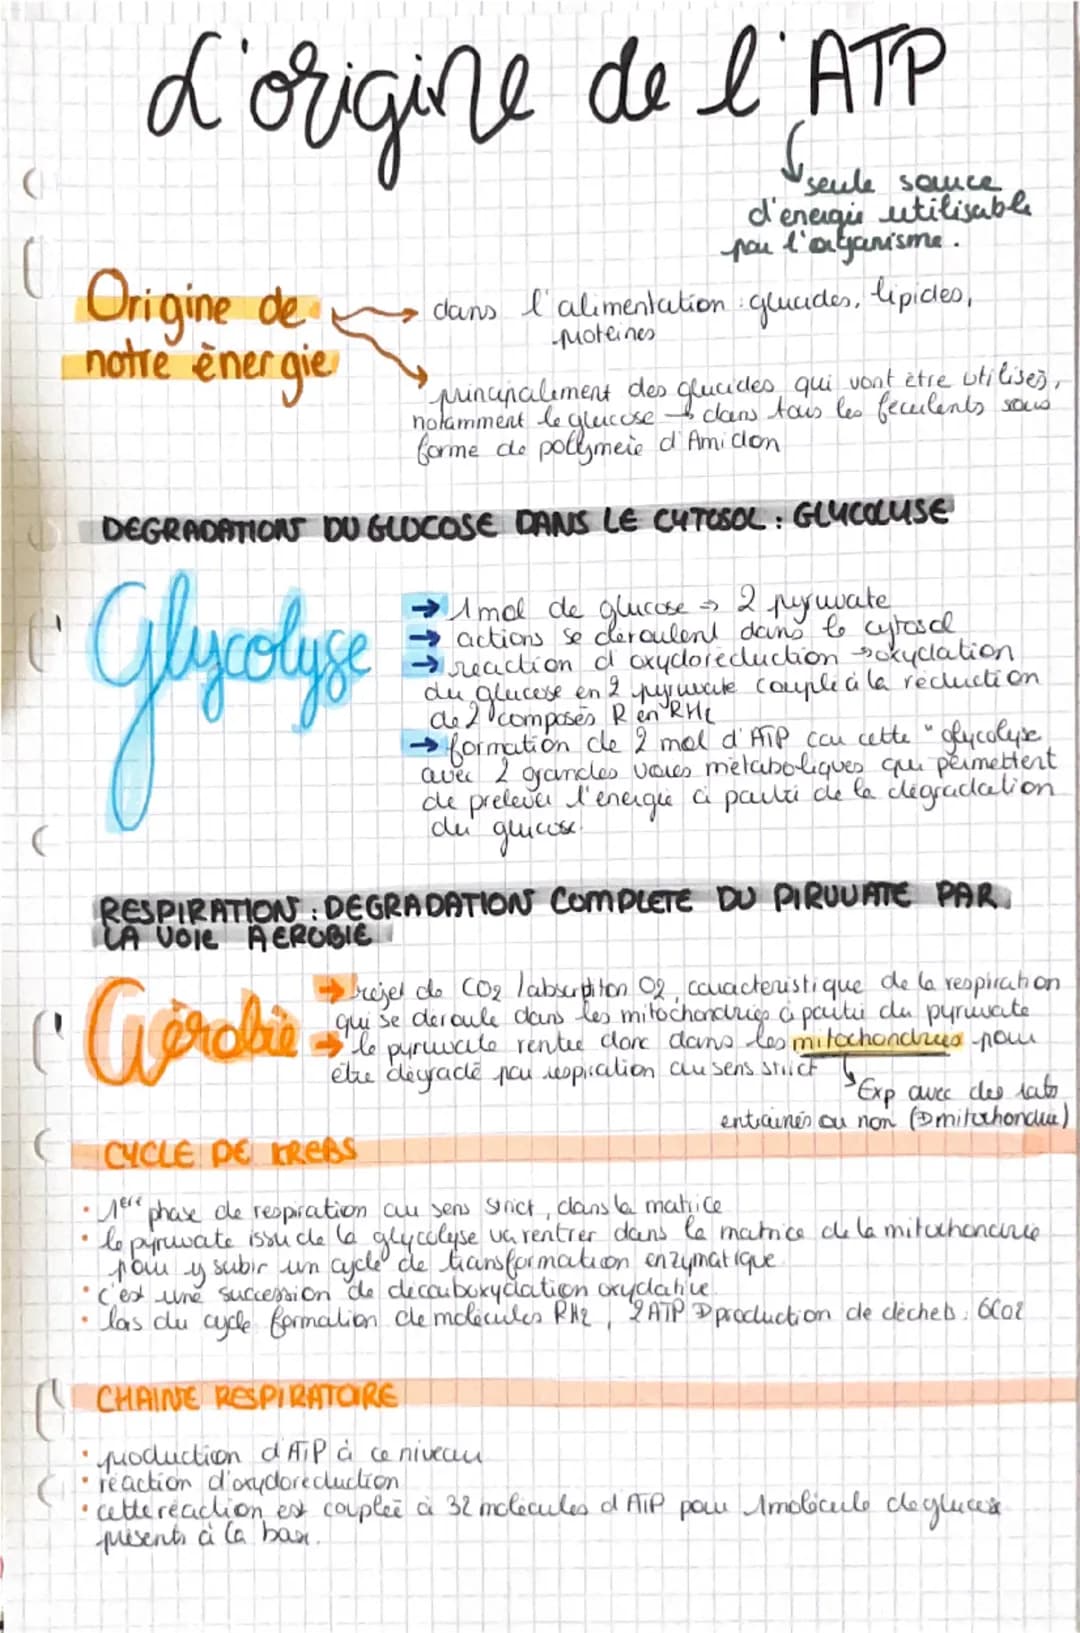 L'origine de l'ATP
seule source
d'energie utilisable
par l'organisme.
Origine de
notre ènergie
dans l'alimentation : glucides, lipides,
proteines
principalement des glucides qui vont être utilisés,
notamment le glucose → dans tous les feculents sous
forme de polymere d'Amidon
DEGRADATION DU GLUCOSE DANS LE CYTOSOL : GLYCOLYSE
Glycolyse
→ 1 mol de glucose ⇒ 2 pyruvate
→ actions se deroulent dans le cytosol
→ reaction d'oxydoreduction → oxydation
du glucose en 2 pyruvate couplé à la réduction
de 2 composés R en RH2
→ formation de 2 mol d'ATP car cette "glycolyse
avec 2 grandes voies métaboliques qui permettent
de prelever l'energie à partir de la dégradation
du glucose.
RESPIRATION : DEGRADATION COMPLETE DU PIRUVATE PAR
LA VOIE AEROBIE
Aérobie
→ rejet de CO2 / absorption O2, caracteristique de la respiration
qui se deroule dans les mitochondries à partir du pyruvate
→ le pyruvate rentre donc dans les mitochondries pour
être dégradé par respiration au sens strict
Exp avec des rats
entrainés ou non (⊃mitochondrie)
CYCLE DE KREBS
• 1ère phase de respiration au sens strict, dans la matrice
• le pyruvate issu de la glycolyse va rentrer dans la matrice de la mitochondrie
pour y subir un cycle de transformation enzymatique
• c'est une succession de décarboxydation oxydative
• lors du cycle formation de molécules RH2, 2 ATP ⊃ production de dechets : 6CO2
CHAINE RESPIRATOIRE
• production d'ATP à ce niveau
• réaction d'oxydoreduction
• cette réaction est couplée à 32 molécules d'ATP pour 1 molécule de glucose
présents à la base.